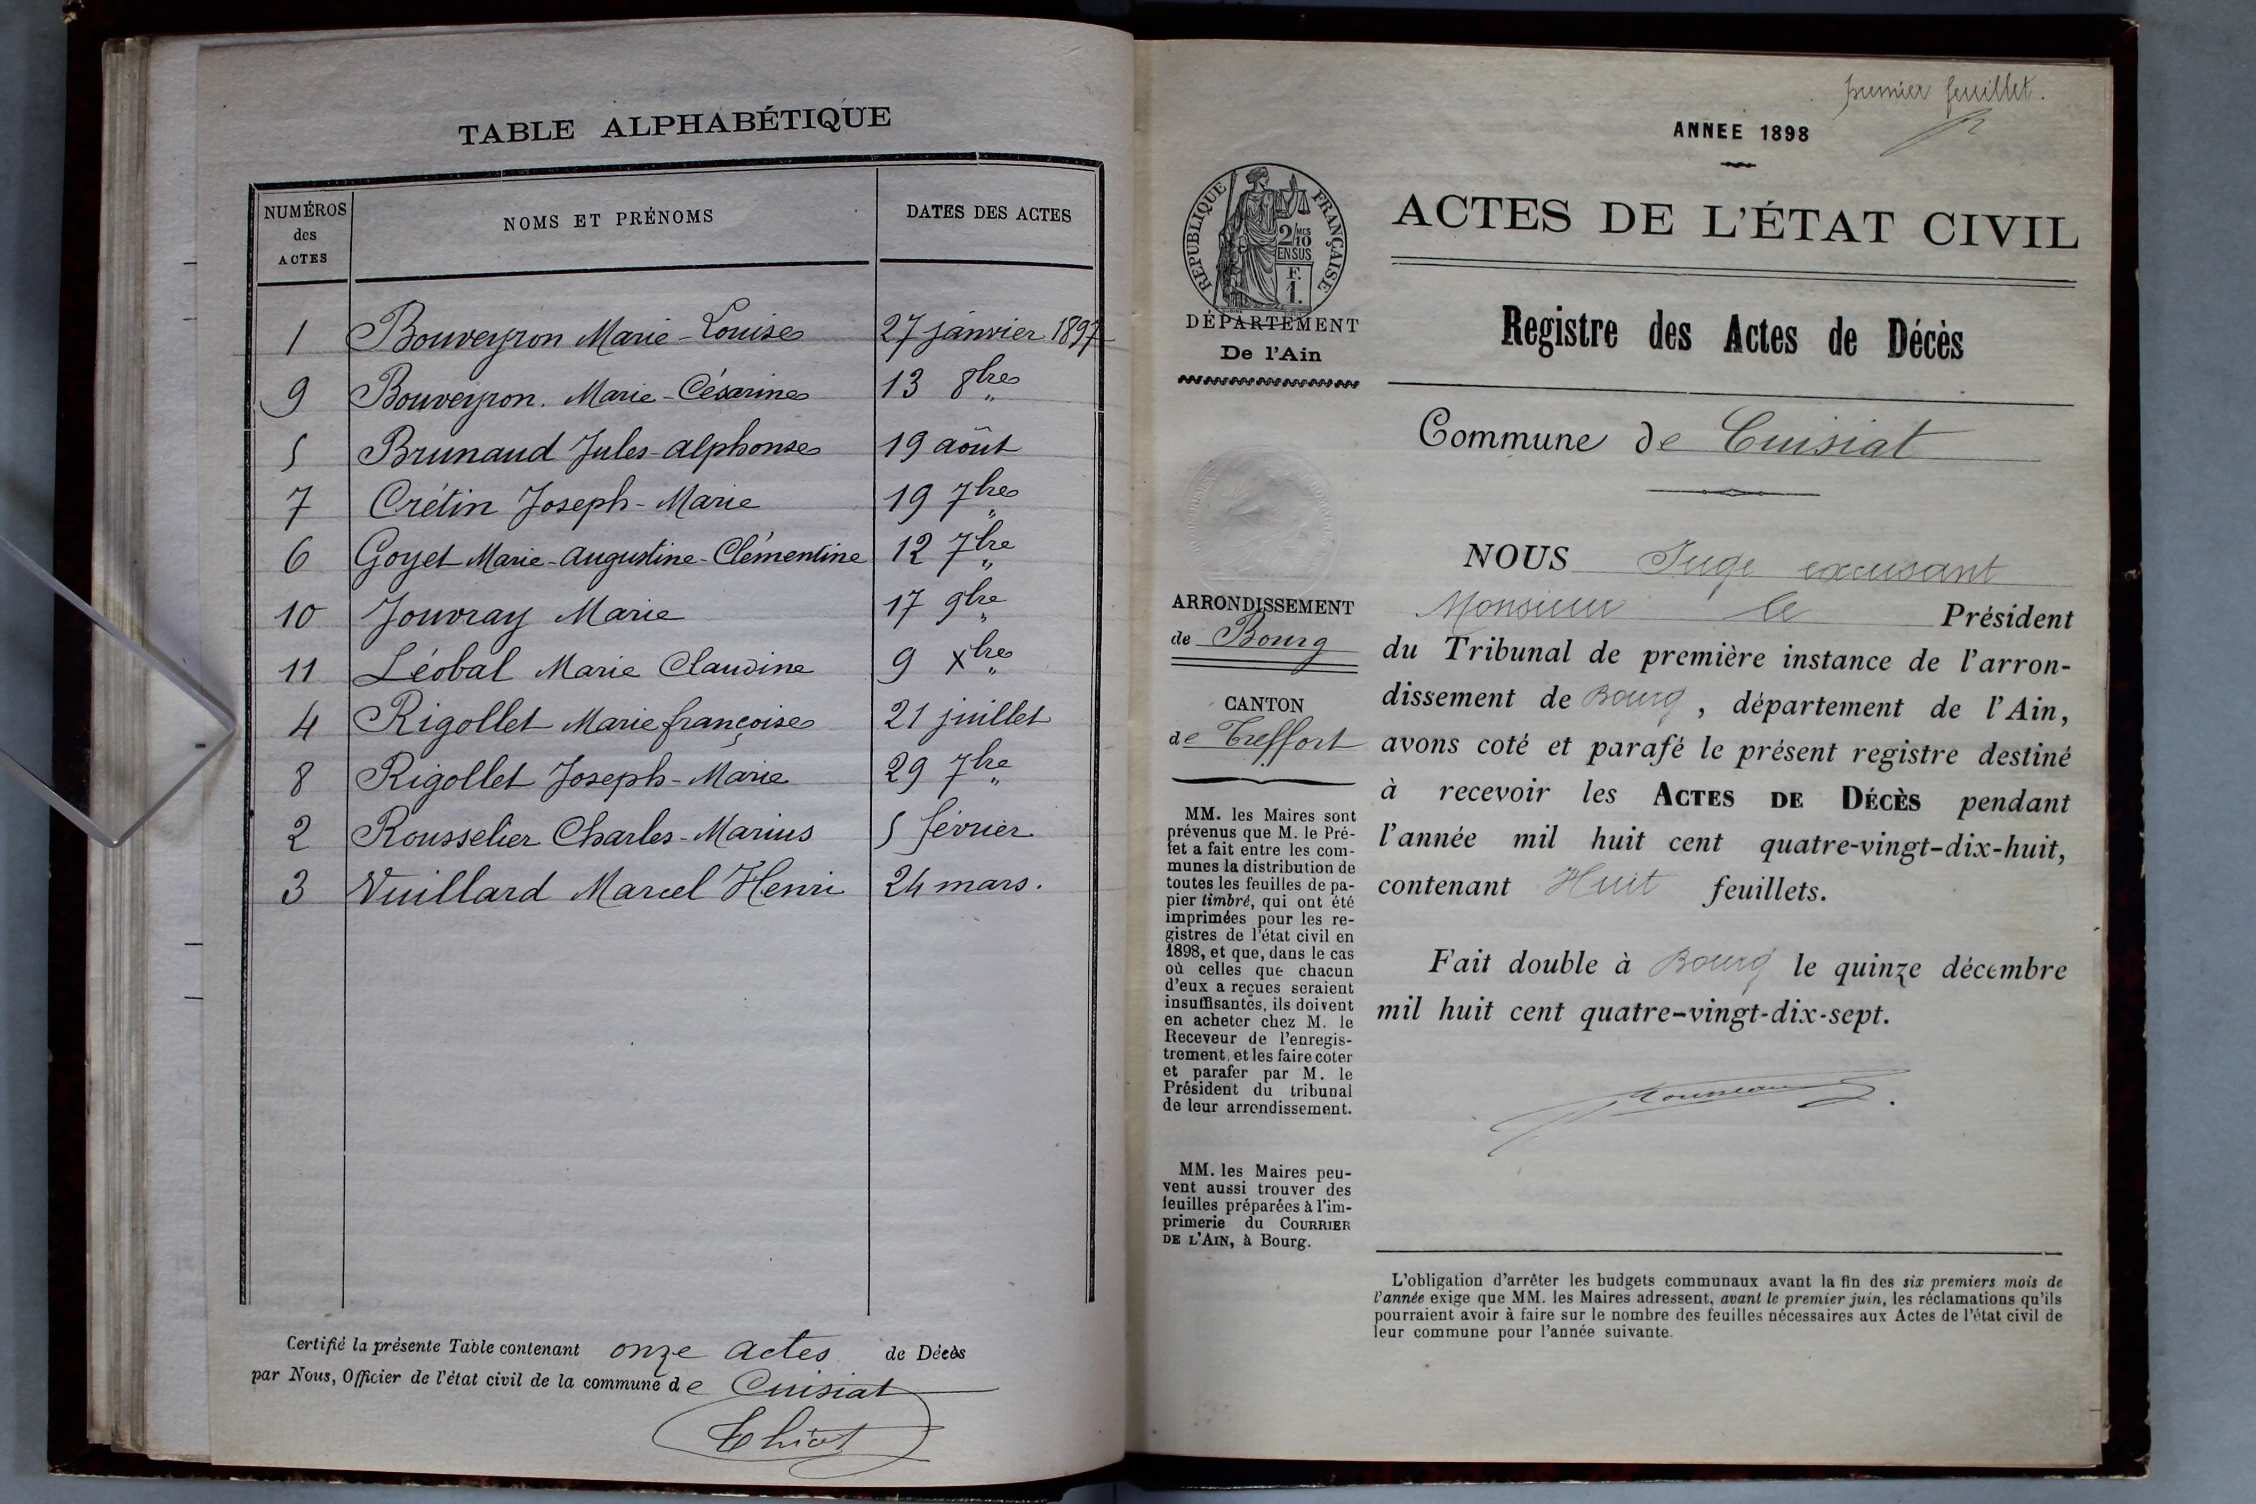 TABLE ALPHABÉTIQUE
NUMÉROS des ACTES NOMS ET PRÉNOMS DATES DES ACTES
1 Bouveyron Marie-Louise 27 janvier 1897
9 Bouveyron Marie-Césarine 13 8bre "
5 Brunaud Jules-Alphonse 19 août
7 Crétin Joseph-Marie 19 7bre "
6 Goyet Marie-Augustine-Clémentine 12 7bre "
10 Jouvray Marie 17 9bre "
11 Léobal Marie Claudine 9 Xbre "
4 Rigollet Marie françoise 21 juillet
8 Rigollet Joseph-Marie 29 7bre "
2 Rousselier Charles-Marius 5 février
3 Vuillard Marcel Henri 24 mars.
Certifié la présente Table contenant onze actes de Décès
par Nous, Officier de l'état civil de la commune de Cuisiat
premier feuillet.
ANNEE 1898
RÉPUBLIQUE FRANÇAISE
2/10 MES
EN SUS
F.
1.
ACTES DE L'ÉTAT CIVIL
DÉPARTEMENT
De l'Ain
Registre des Actes de Décès
Commune de Cuisiat
ARRONDISSEMENT
de Bourg
CANTON
de Treffort
MM. les Maires sont
prévenus que M. le Pré-
fet a fait entre les com-
munes la distribution de
toutes les feuilles de pa-
pier timbré, qui ont été
imprimées pour les re-
gistres de l'état civil en
1898, et que, dans le cas
où celles que chacun
d'eux a reçues seraient
insuffisantes, ils doivent
en acheter chez M. le
Receveur de l'enregis-
trement, et les faire coter
et parafer par M. le
Président du tribunal
de leur arrondissement.
MM. les Maires peu-
vent aussi trouver des
feuilles préparées à l'im-
primerie du COURRIER
DE L'AIN, à Bourg.
NOUS Juge excusant
Monsieur le Président
du Tribunal de première instance de l'arron-
dissement de Bourg, département de l'Ain,
avons coté et parafé le présent registre destiné
à recevoir les ACTES DE DÉCÈS pendant
l'année mil huit cent quatre-vingt-dix-huit,
contenant Huit feuillets.
Fait double à Bourg le quinze décembre
mil huit cent quatre-vingt-dix-sept.
L'obligation d'arrêter les budgets communaux avant la fin des six premiers mois de
l'année exige que MM. les Maires adressent, avant le premier juin, les réclamations qu'ils
pourraient avoir à faire sur le nombre des feuilles nécessaires aux Actes de l'état civil de
leur commune pour l'année suivante.